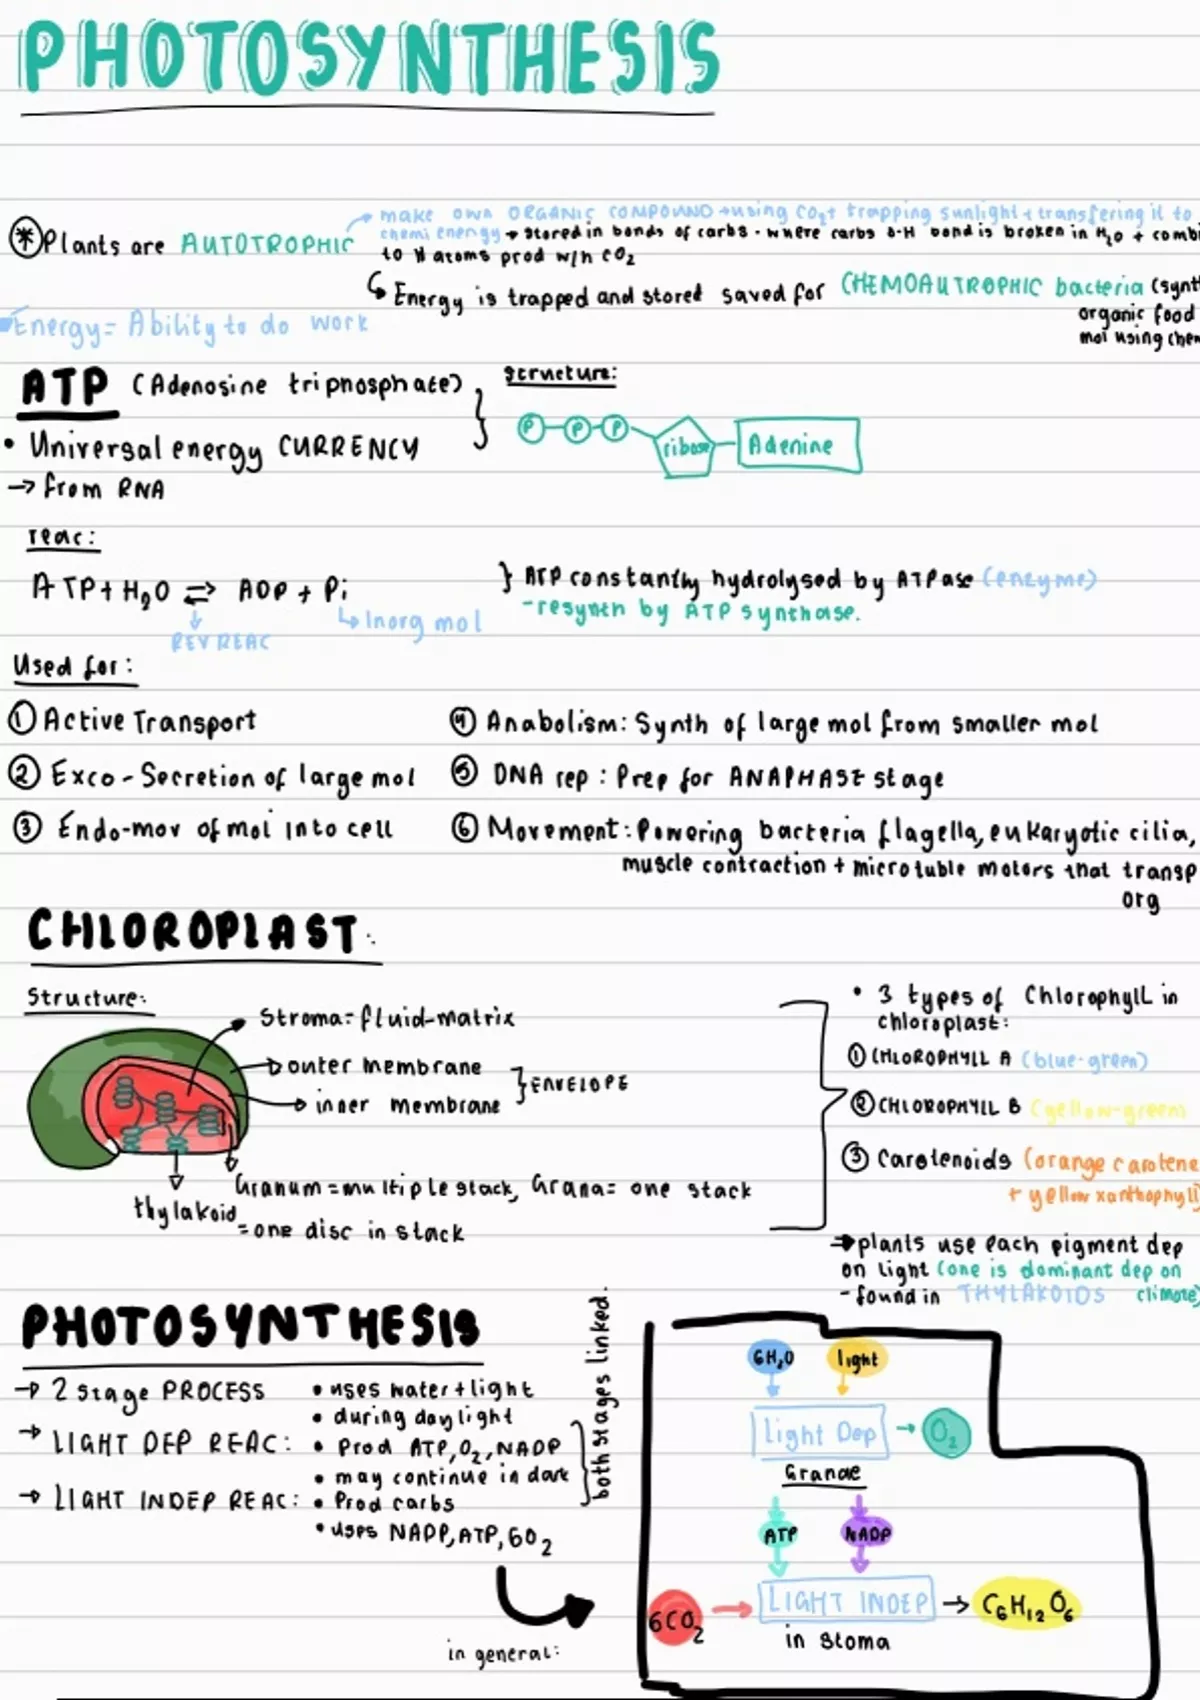 PHOTOSYNTHESIS
make own ORGANIC COMPOUND → using CO2 + trapping sunlight + transfering it to
* Plants are AUTOTROPHIC
chemi energy → stored in bonds of carbs. where carbs O-H bond is broken in H2O + combi
to H atoms prod w/n CO2
Energy is trapped and stored saved for CHEMOAUTROPHIC bacteria (synt
organic food
mol using chem
Energy = Ability to do work
ATP (Adenosine triphosphate)
structure:
P P P ribose Adenine
• Universal energy CURRENCY
→ from RNA
reac:
ATP + H2O ⇌ ADP + Pi
} ATP constantly hydrolysed by ATPase (enzyme)
- resynth by ATP synthase.
↳ Inorg mol
REV REAC
Used for:
① Active Transport
② Exco - Secretion of large mol
③ Endo-mov of mol into cell
④ Anabolism: Synth of large mol from smaller mol
⑤ DNA rep: Prep for ANAPHASE stage
⑥ Movement: Powering bacteria flagella, eukaryotic cilia,
muscle contraction + microtuble motors that transp
org
CHLOROPLAST:
Structure:
Stroma = fluid-matrix
outer membrane
inner membrane
} ENVELOPE
Granum = multiple stack, Grana = one stack
thylakoid
= one disc in stack
• 3 types of Chlorophyll in
chloroplast:
① CHLOROPHYLL A (blue-green)
② CHLOROPHYLL B (yellow-green)
③ Carotenoids (orange carotene
+ yellow xanthophyll)
→ plants use each pigment dep
on light (one is dominant dep on
climate)
- found in THYLAKOIDS
PHOTOSYNTHESIS
→ 2 stage PROCESS
→ LIGHT DEP REAC:
→ LIGHT INDEP REAC:
• uses water + light
• during daylight
• Prod ATP, O2, NADP
• may continue in dark
• Prod carbs
• uses NADP, ATP, 6O2
both stages linked.
in general:
6H2O light
Light Dep → O2
Granae
ATP NADP
6CO2 → LIGHT INDEP → C6H12O6
in stoma